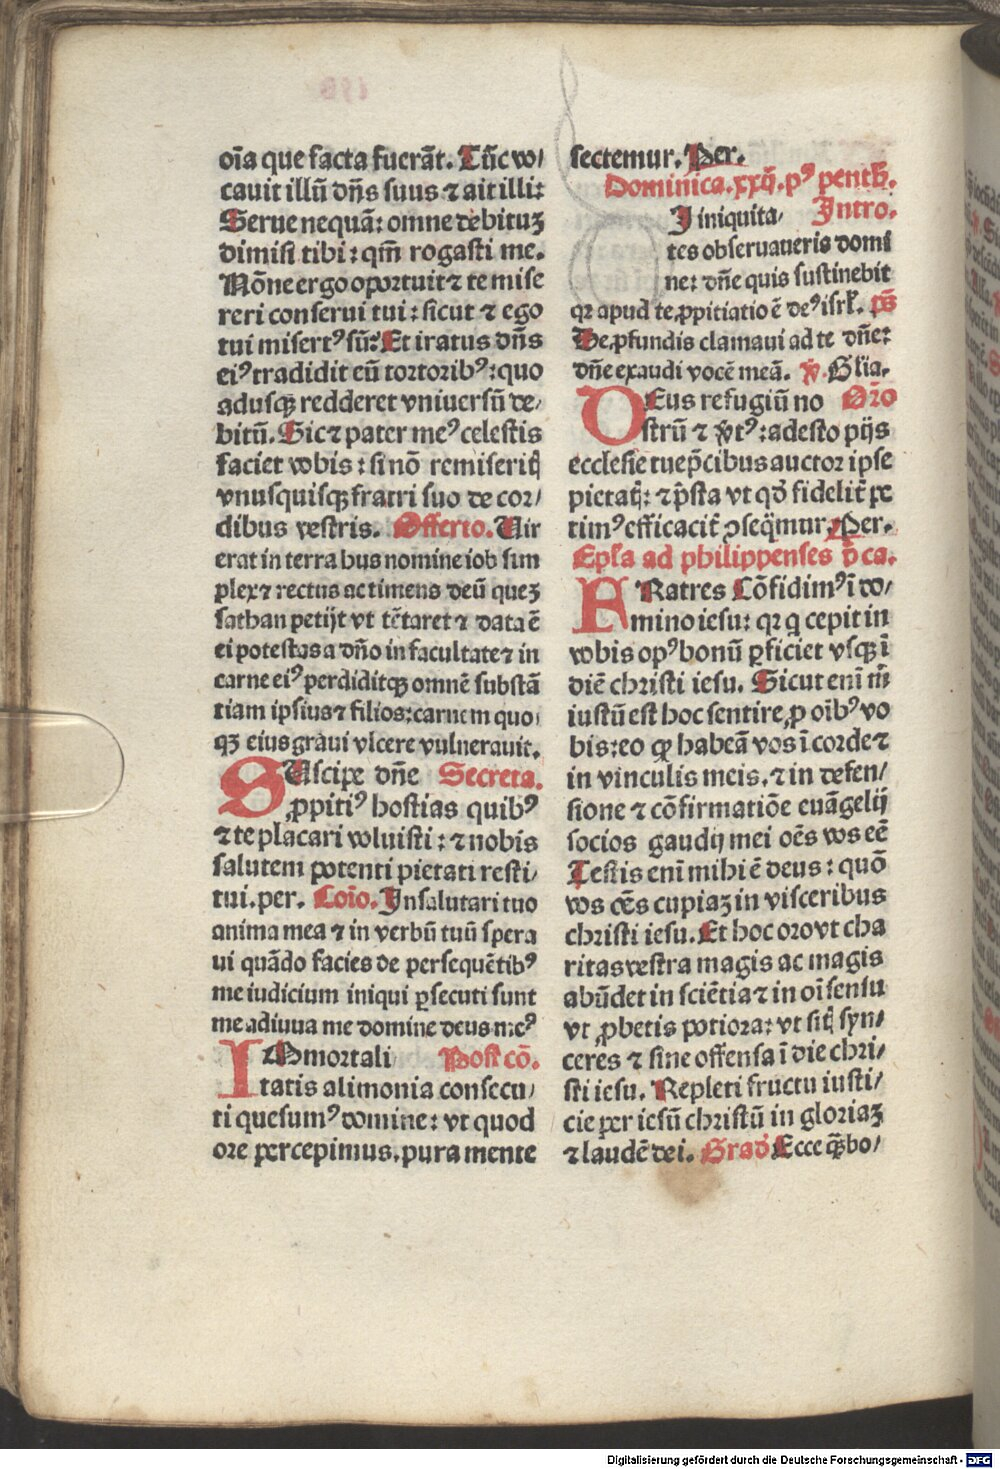 oīa que facta fuerāt. Tūc vo/
cauit illū dn̄s suus ⁊ ait illi:
Serue nequā: omne debituꝫ
dimisi tibi: qm̄ rogasti me.
Nōne ergo oportuit ⁊ te mise
reri conserui tui: sicut ⁊ ego
tui misertꝰ sū: Et iratus dn̄s
eiꝰ tradidit eū tortoribꝰ: quo
adusqꝫ redderet vniuersū de/
bitū. Sic ⁊ pater meꝰ celestis
faciet vobis: si nō remiseritꝭ
vnusquisqꝫ fratri suo de cor/
dibus vestris. Offerto. Uir
erat in terra hus nomine iob sim
plex ⁊ rectus ac timens deū queꝫ
sathan petijt vt tētaret ⁊ data ē
ei potestas a dn̄o in facultate ⁊ in
carne eiꝰ perdiditqꝫ omnē substā
tiam ipsius ⁊ filios: carnem quo/
qꝫ eius graui vlcere vulnerauit.
SUscipe dn̄e Secreta.
ꝓpitiꝰ hostias quibꝰ
⁊ te placari voluisti: ⁊ nobis
salutem potenti pietati resti/
tui. per. Cōio. In salutari tuo
anima mea ⁊ in verbū tuū spera
ui quādo facies de persequētibꝰ
me iudicium iniqui ꝑsecuti sunt
me adiuua me domine deus meꝰ
IMmortali/ Post cō.
tatis alimonia consecu/
ti quesumꝰ domine: vt quod
ore percepimus. pura mente
sectemur. Per.
Dominica. xxij. pꝰ penth̄.
SI iniquita/ Intro.
tes obseruaueris domi
ne: dn̄e quis sustinebit
qꝛ apud te ꝓpitiatio ē deꝰ isrl̄. ps̄
De ꝓfundis clamaui ad te dn̄e:
dn̄e exaudi vocē meā. ℣. Gl̄ia.
DEus refugiū no Oro
strū ⁊ v̄tꝰ: adesto pijs
ecclesie tue p̄cibus auctor ipse
pietatꝭ: ⁊ p̄sta vt qđ fidelit̄ pe
timꝰ efficacit̄ ꝯseq̄mur. Per.
Epl̄a ad philippenses p̄ ca.
FRatres Cōfidimꝰ ī do/
mino iesu: qꝛ q̄ cepit in
vobis opꝰ bonū ꝑficiet vsqꝫ ī
diē christi iesu. Sicut enī m̄
iustū est hoc sentire ꝓ oībꝰ vo
bis: eo ꝙ habeā vos ī corde ⁊
in vinculis meis. ⁊ in defen/
sione ⁊ cōfirmatiōe euāgelij
socios gaudij mei oēs vos eē
Testis enī mihi ē deus: quō
vos oēs cupiaꝫ in visceribus
christi iesu. Et hoc oro vt cha
ritas vestra magis ac magis
abūdet in sciētia ⁊ in oī sensu
vt ꝓbetis potiora: vt sitꝭ syn/
ceres ⁊ sine offensa ī die chri/
sti iesu. Repleti fructu iusti/
cie per iesū christū in gloriaꝫ
⁊ laudē dei. Grad̄ Ecce q̄ꝫ bo/
Digitalisierung gefördert durch die Deutsche Forschungsgemeinschaft - DFG